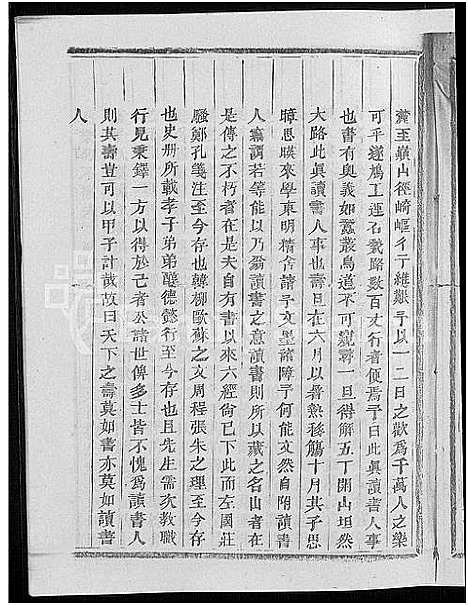 黃玉巖山徑崎嶇彳亍維艱予以一二日之歡為千萬人之樂
可乎遂鳩工運石甃路數百丈行者便焉予曰此眞讀書人事
也書有奧義如蠶叢鳥道不可窺尋一旦得解五丁開山坦然
大路此眞讀書人事也壽旦在六月以暑熱移觴十月其子思
暐思暎來學東明精舍請予文墨諸障予何能文然自附讀書
人竊謂若等能以乃翁讀書之意讀書則所以藏之名山者在
是傳之不朽者在是夫自有書以來六經尚已下此而左國莊
騷鄭孔箋注至今存也韓柳歐蘇之文周程張朱之理至今存
也史册所載孝子弟弟醲德懿行至今存也且先生需次教職
行見秉鐸一方以得於己者公諸世俾多士皆不愧為讀書人
則其壽豈可以甲子計哉故曰天下之壽莫如書亦莫如讀書
人